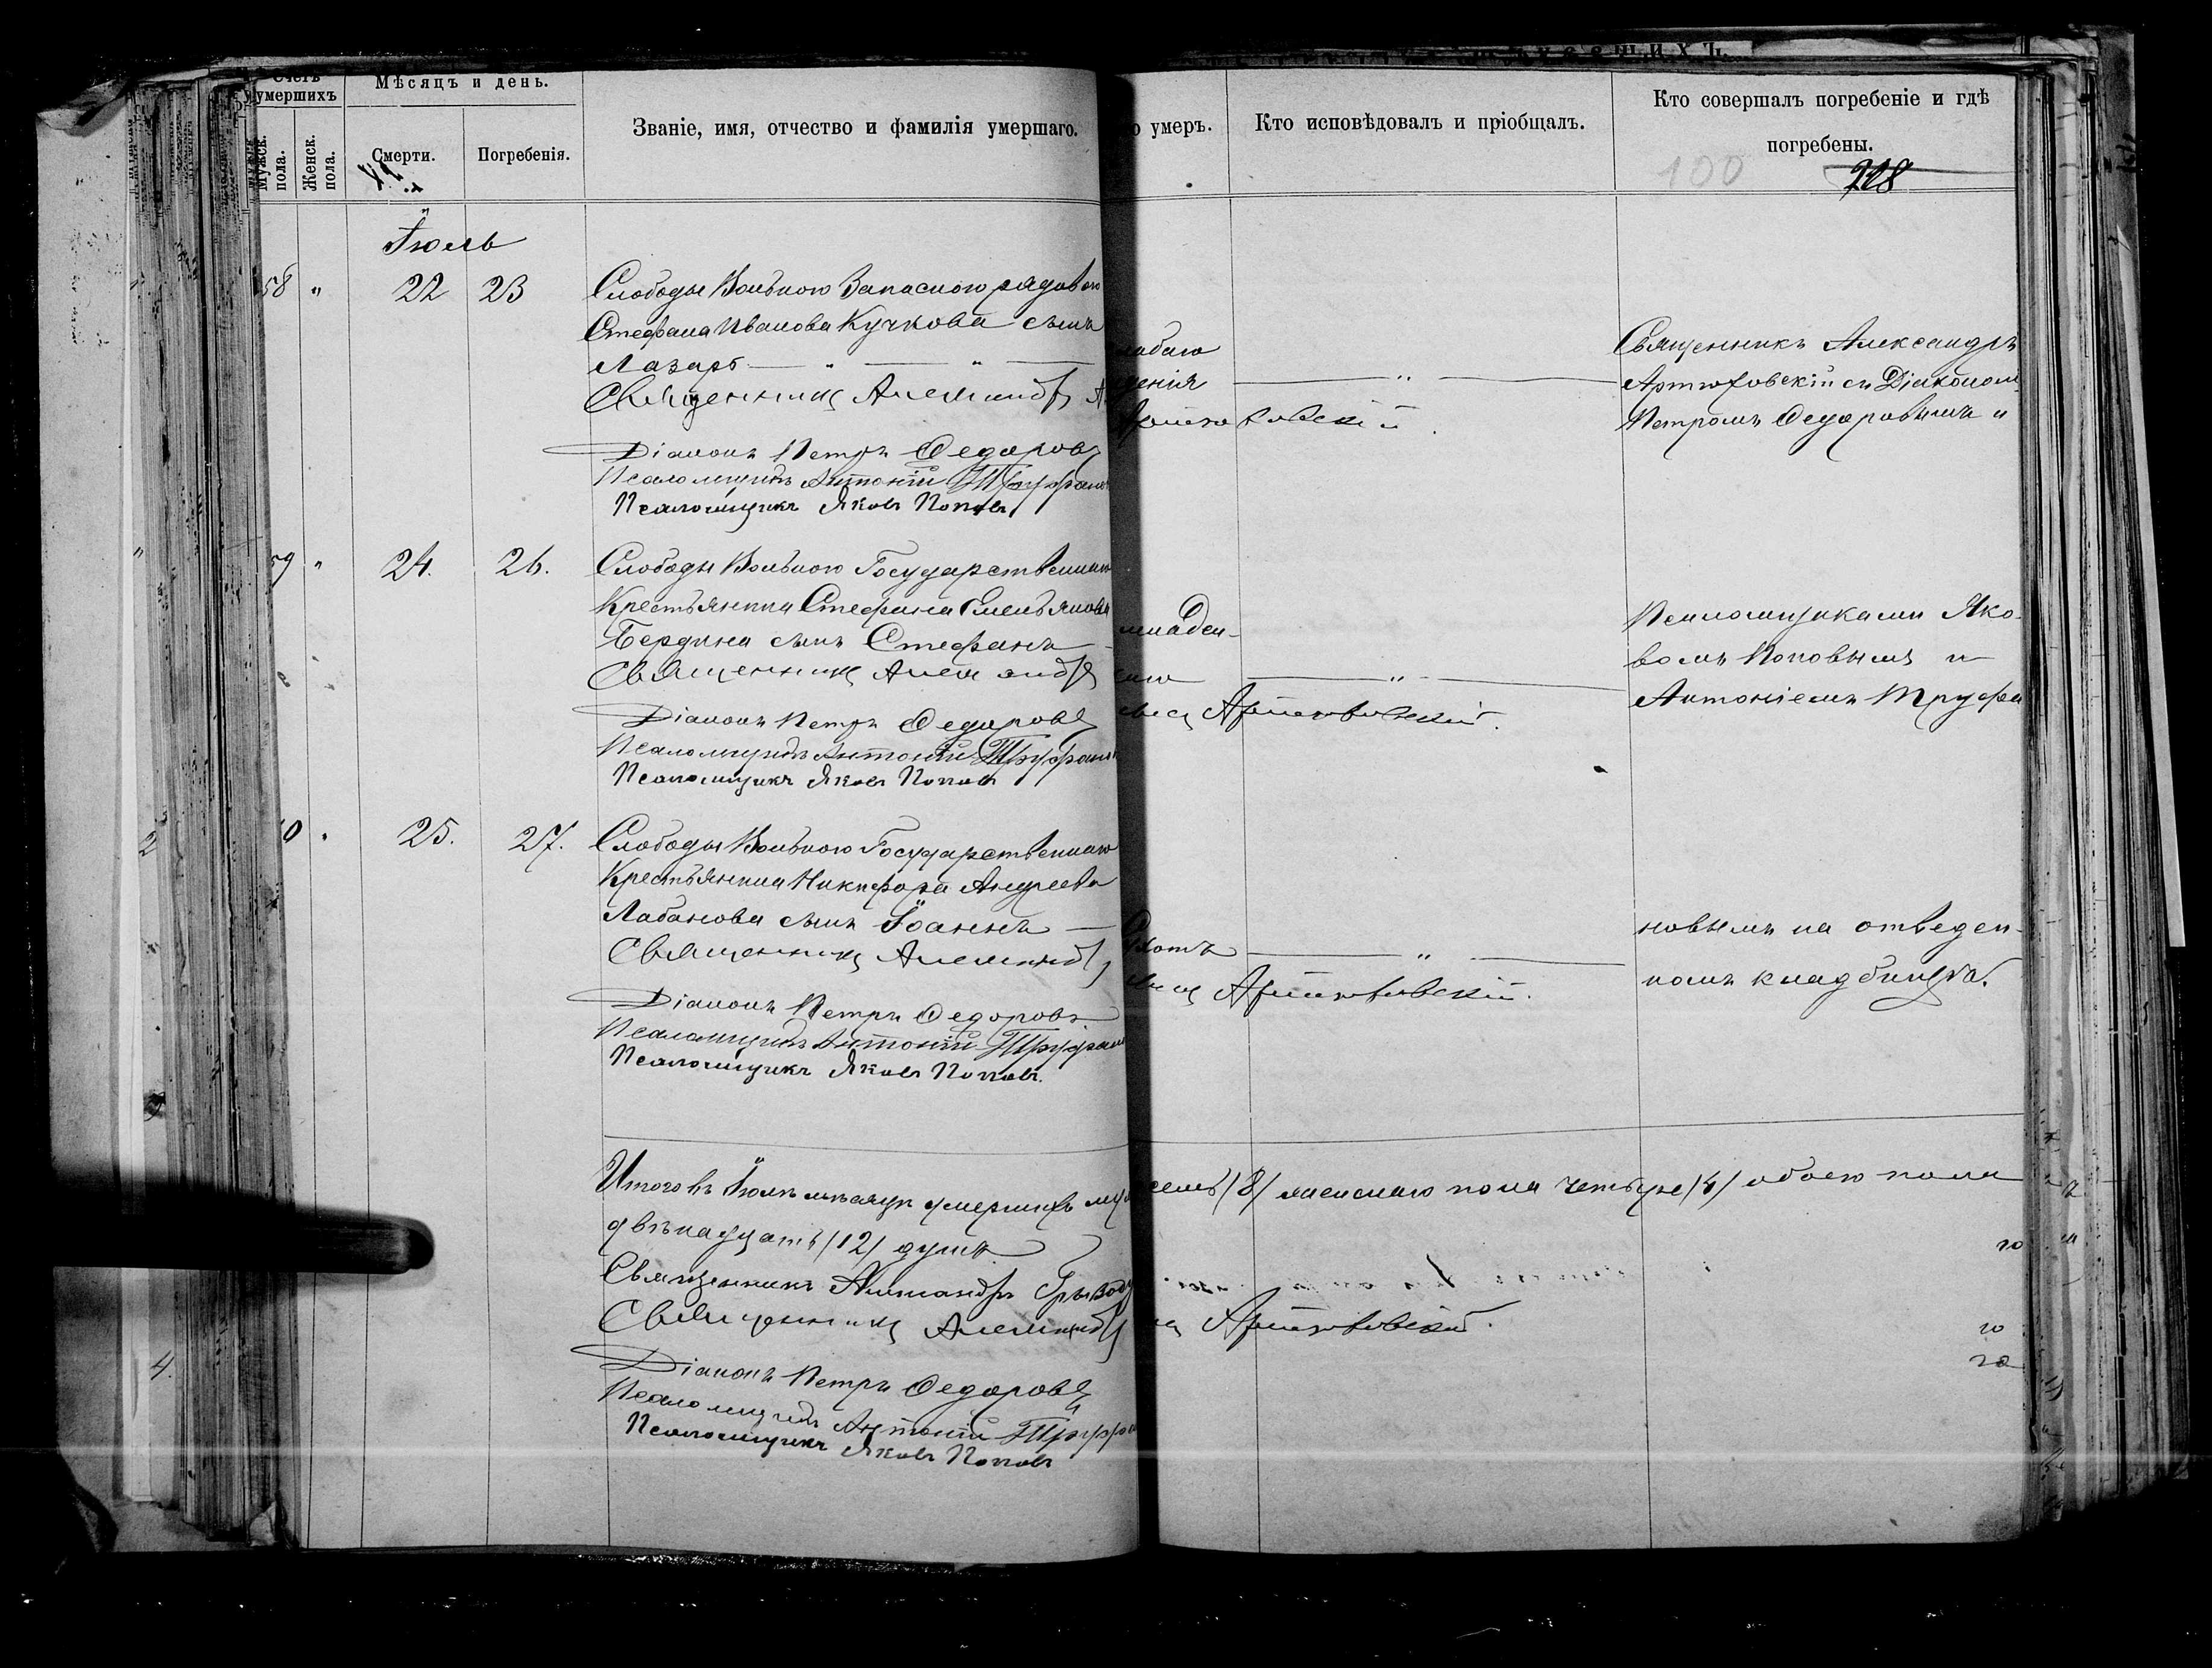 Счетъ умершихъ
Мѣсяцъ и день.
Мужск. пола.
Женск. пола.
Смерти.
Погребенія.
Званіе, имя, отчество и фамилія умершаго.
умеръ.
Кто исповѣдовалъ и пріобщалъ.
Кто совершалъ погребеніе и гдѣ
погребены.
100
Іюль
58 " 22 23 Слободы Вольнаго Запаснаго рядового
Стефана Иванова Кучкова сынъ
Лазарь — " —
Священникъ Александръ Артюховскій
Діаконъ Петръ Федоровъ
Псаломщикъ Антоній Труфанов
Псаломщикъ Яковъ Поповъ
Священникъ Александръ
Артюховскій съ Діакономъ
Петромъ Федоровымъ и
59 " 24. 26. Слободы Вольнаго Государственнаго
Крестьянина Стефана Емельянова
Бердина сынъ Стефанъ
младен-
Священникъ Александръ Артюховскій.
Діаконъ Петръ Федоровъ
Псаломщикъ Антоній Труфанов
Псаломщикъ Яковъ Поповъ
Псаломщиками Яко-
вомъ Поповымъ и
Антоніемъ Труфа
0 " 25. 27. Слободы Вольнаго Государственнаго
Крестьянина Никифора Андреева
Лабанова сынъ Іоаннъ —
Священникъ Александръ Артюховскій.
Діаконъ Петръ Федоровъ
Псаломщикъ Антоній Труфанов
Псаломщикъ Яковъ Поповъ.
новымъ на отведен-
номъ кладбищѣ.
Итого въ Іюлѣ мѣсяцѣ умершихъ муж семь /8/ женскаго пола четыре /4/ обоего пола
двѣнадцать /12/ душъ
Священникъ Александръ
Священникъ Александръ Артюховскій.
Діаконъ Петръ Федоровъ
Псаломщикъ Антоній Труфа
Псаломщикъ Яковъ Поповъ